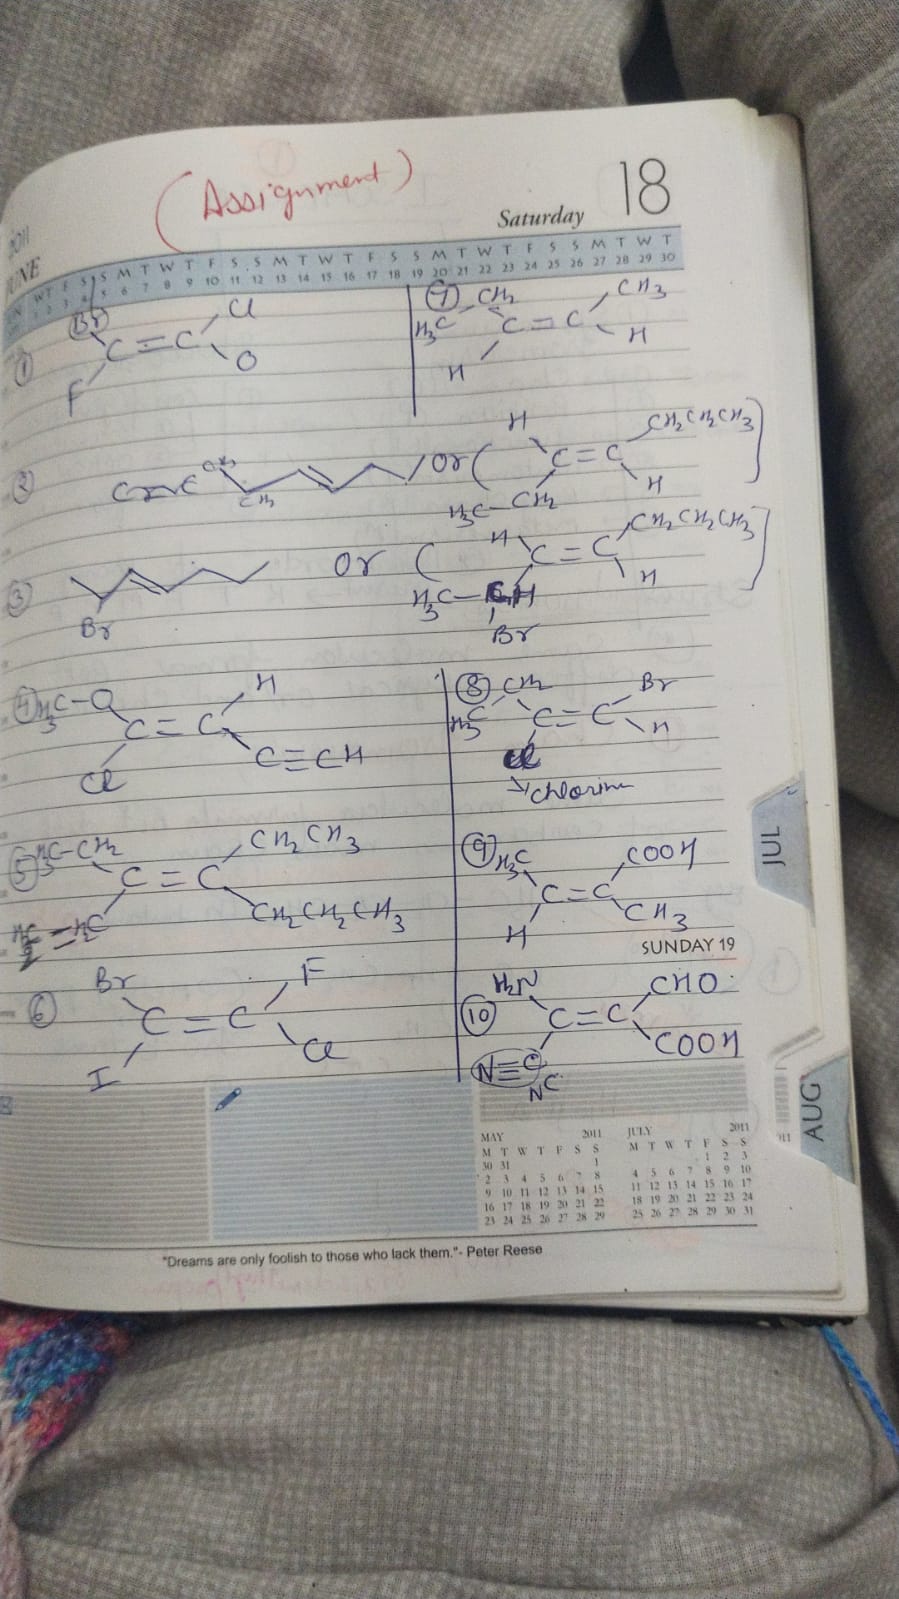 (Assignment)
18
Saturday
2011
JUNE
W T F S S M T W T F S S M T W T F S S M T W T F S S M T W T
1 2 3 4 5 6 7 8 9 10 11 12 13 14 15 16 17 18 19 20 21 22 23 24 25 26 27 28 29 30
① Br Cl
C=C
F O
⑦ CH₂ CH₃
H₃C C=C
H H
② CH₃ Or ( H CH₂CH₂CH₃
CH₃ C=C
H₃C-CH₂ H
③ Or ( H CH₂CH₂CH₃
C=C
H₃C-CH H
Br Br
④ H₃C-O H
C=C
Cl C≡CH
⑧ CH₂ Br
H₃C C=C
Cl H
→chlorine
⑤ H₃C-CH₂ CH₂CH₃
C=C
CH₂CH₂CH₃
⑨ H₃C COOH
C=C
H CH₃
SUNDAY 19
⑥ Br F
C=C
I Cl
⑩ H₂N CHO
C=C
N≡C COOH
NC
JUL
AUG
MAY 2011
M T W T F S S
30 31 1
2 3 4 5 6 7 8
9 10 11 12 13 14 15
16 17 18 19 20 21 22
23 24 25 26 27 28 29
JULY 2011
M T W T F S S
1 2 3
4 5 6 7 8 9 10
11 12 13 14 15 16 17
18 19 20 21 22 23 24
25 26 27 28 29 30 31
"Dreams are only foolish to those who lack them."- Peter Reese